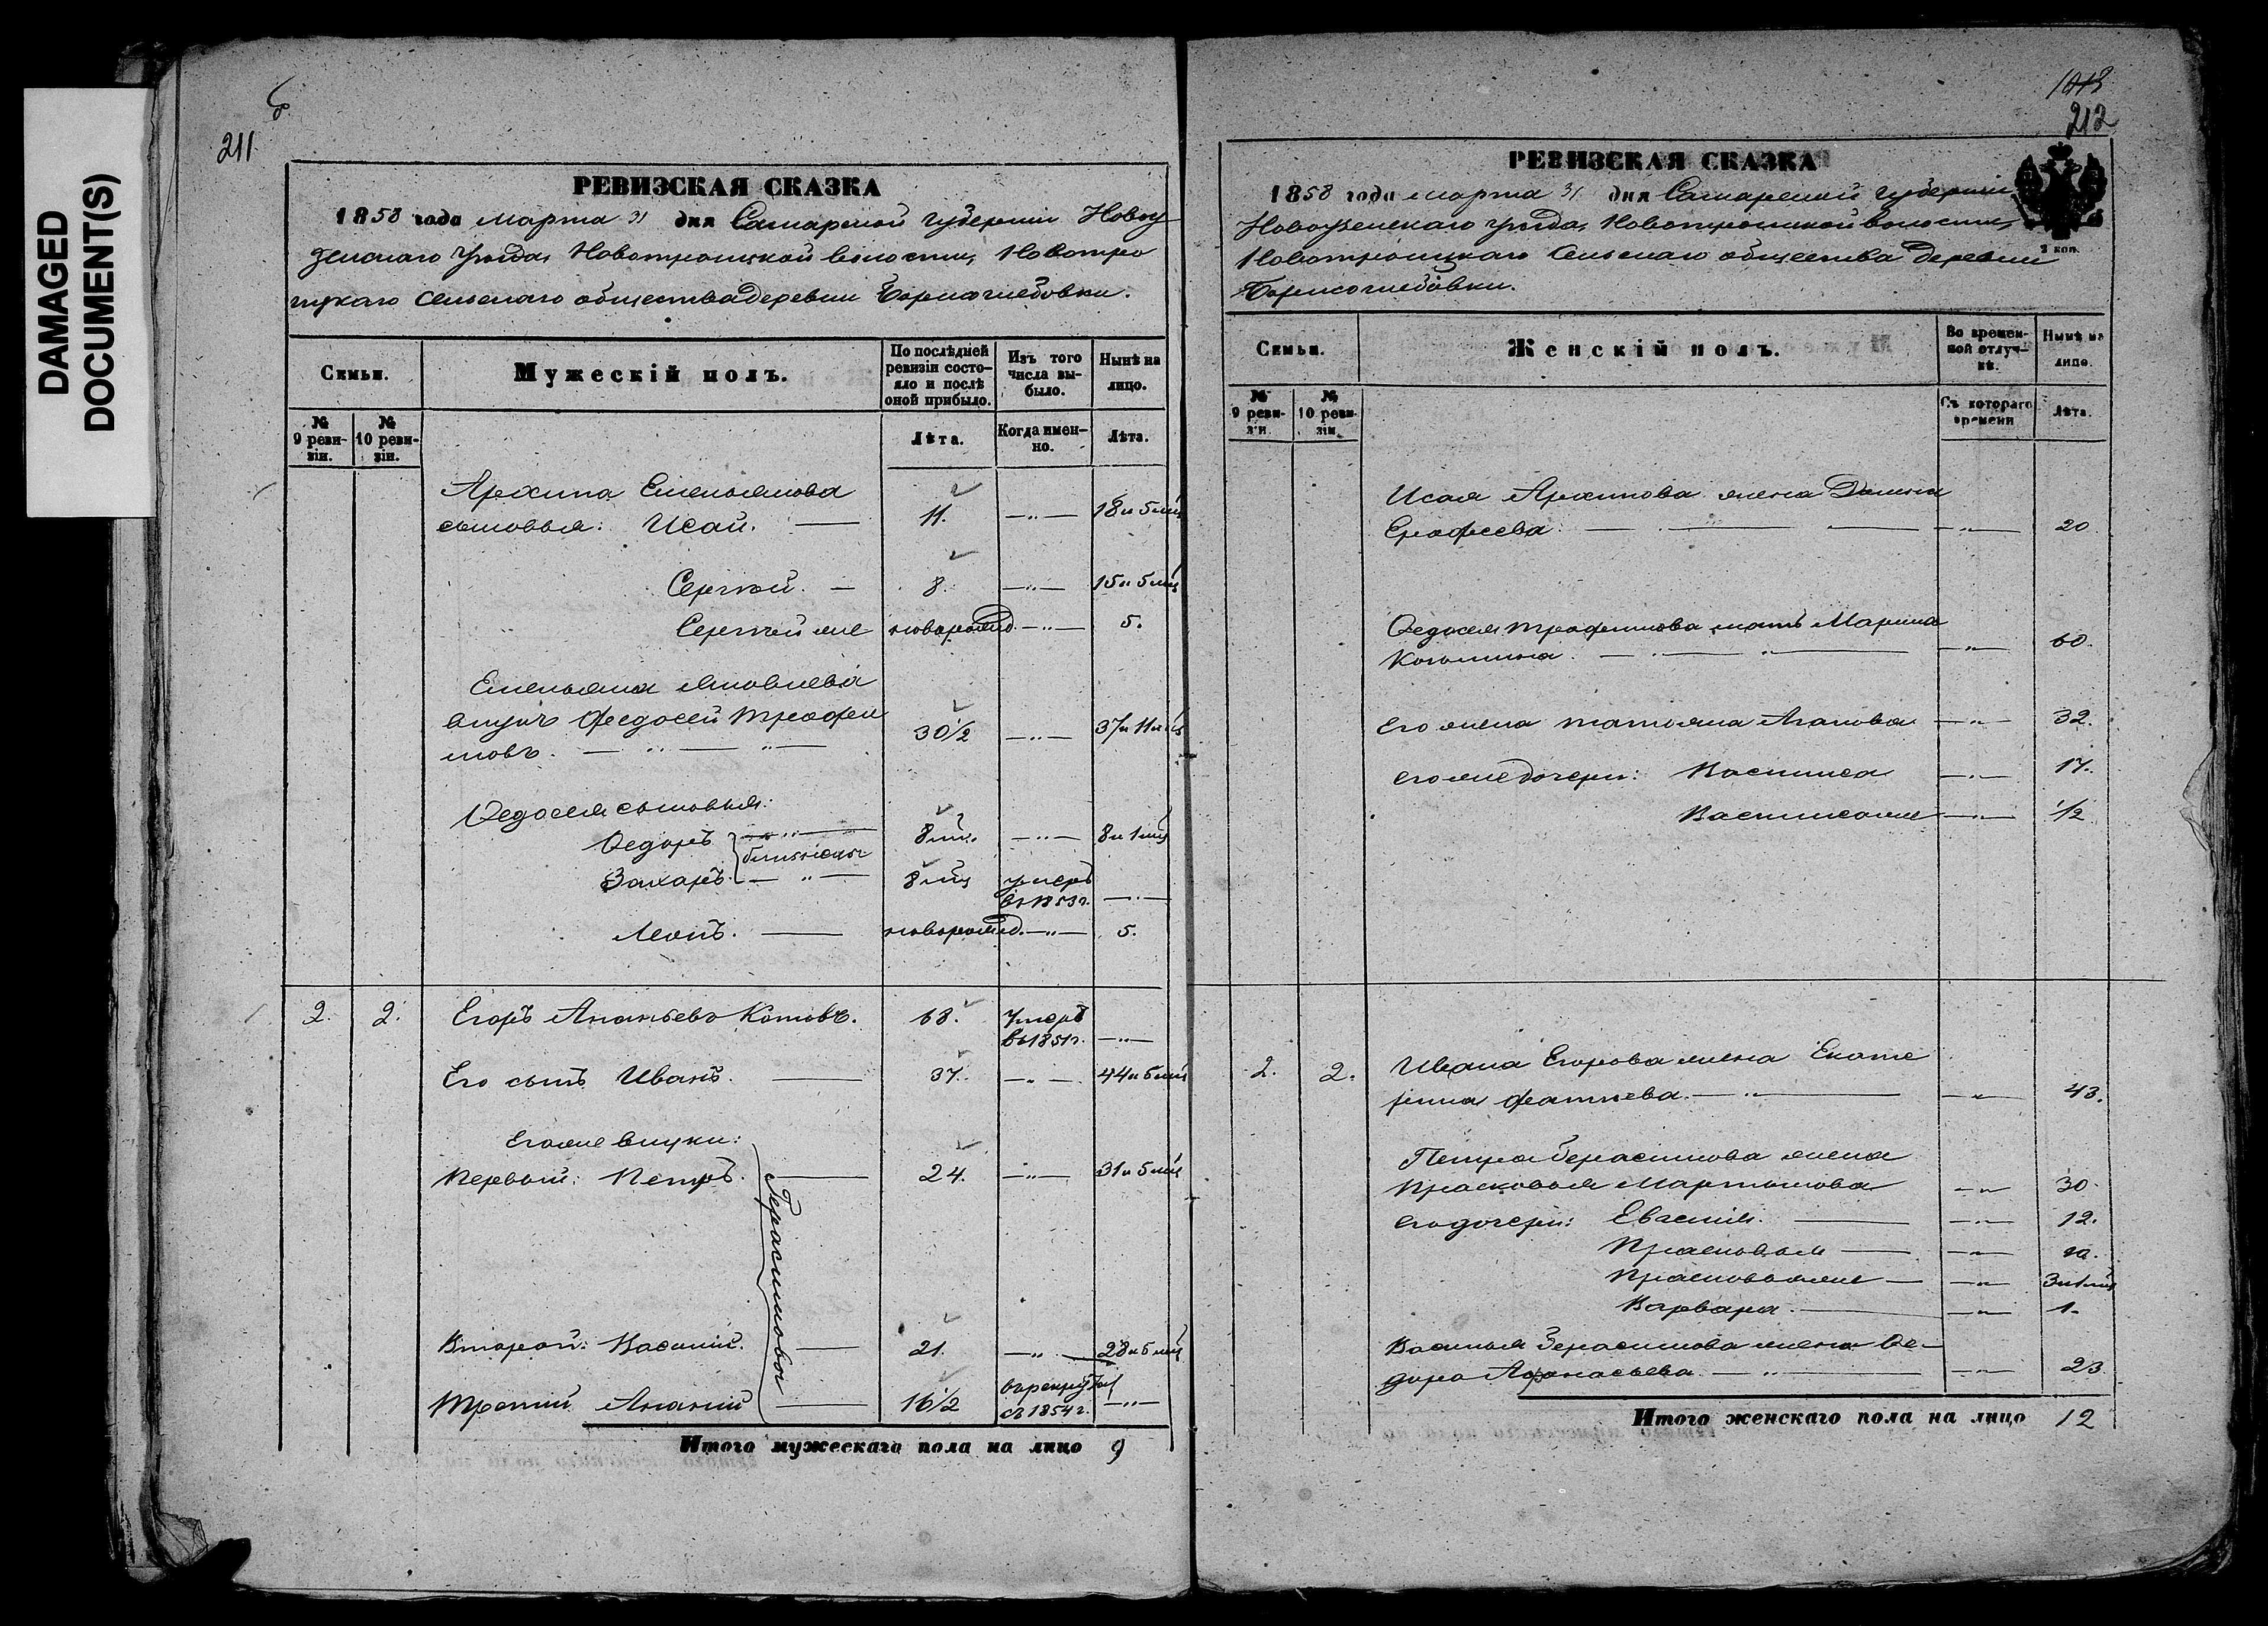 DAMAGED
DOCUMENT(S)
211
РЕВИЗСКАЯ СКАЗКА
1858 года марта 31 дня Самарской губерніи Новоу
зенскаго Уѣзда, Новотроицкой волости, Новотро
ицкаго Сельскаго общества деревни Борисоглебовки.
Семьи.
Мужескій полъ.
По послѣдней ревизіи состояло и послѣ оной прибыло.
Изъ того числа выбыло.
Нынѣ на лицо.
№ 9 ревизіи.
№ 10 ревизіи.
Лѣта.
Когда именно.
Лѣта.
Архипа Емельянова
сыновья: Исай. — 11. —„— 18 и 5 мц
Сергѣй. — 8. —„— 15 и 5 мц
Сергѣй же новорожд. —„— 5.
Емельяна Яковлева
внукъ Федосей Трофи
мовъ. — „ — „ — 30½ —„— 37 и 11 мц
Ѳедосея сыновья:
Ѳедоръ — „ — 8 мц. —„— 8 и 1 мц
близнецы
Захаръ. — „ — 8 мц умеръ
въ 1853 г. —„—
Леонъ. — новорожд. —„— 5.
2. 2. Егоръ Ананьевъ Котовъ. 68. Умеръ
въ 1851 г. —„—
Его сынъ Иванъ. — 37. —„— 44 и 5 мц
Его же внуки:
Первый: Петръ. — 24. —„— 31 и 5 мц
Герасимовы
Второй: Василій. — 21. —„— 28 и 5 мц
Третій Ананій — 16½ въ рекруты
съ 1854 г. —„—
Итого мужескаго пола на лицо 9
1013
212
РЕВИЗСКАЯ СКАЗКА
1858 года марта 31 дня Самарской губерніи
Новоузенскаго уѣзда, Новотроицкой волости,
Новотроицкаго Сельскаго общества деревни
Борисоглебовки.
коп.
Семьи.
Женскій полъ.
Во временной отлучкѣ.
Нынѣ на лицо.
№ 9 ревизіи.
№ 10 ревизіи.
Съ котораго времени
Лѣта.
Исая Архипова жена
Ерофеева. — — — —„— 20
Ѳедосея Трофимова мать Марина
Козьмина. — — —„— 60.
Его жена Татьяна Агапова —„— 32.
его же дочери: Василиса —„— 17.
Василиса же —„— ½
2. 2. Ивана Егорова жена Екате
рина Фатеева. — „ — —„— 43.
Петра Герасимова жена
Прасковья Мартынова —„— 30.
его дочери: Евгенія. — —„— 12.
Прасковья — —„—
Прасковья же — —„— 3 и 1 мц
Варвара. — —„— 1.
Василья Герасимова жена Ѳе-
дора Афанасьева. — „ — —„— 23
Итого женскаго пола на лицо 12